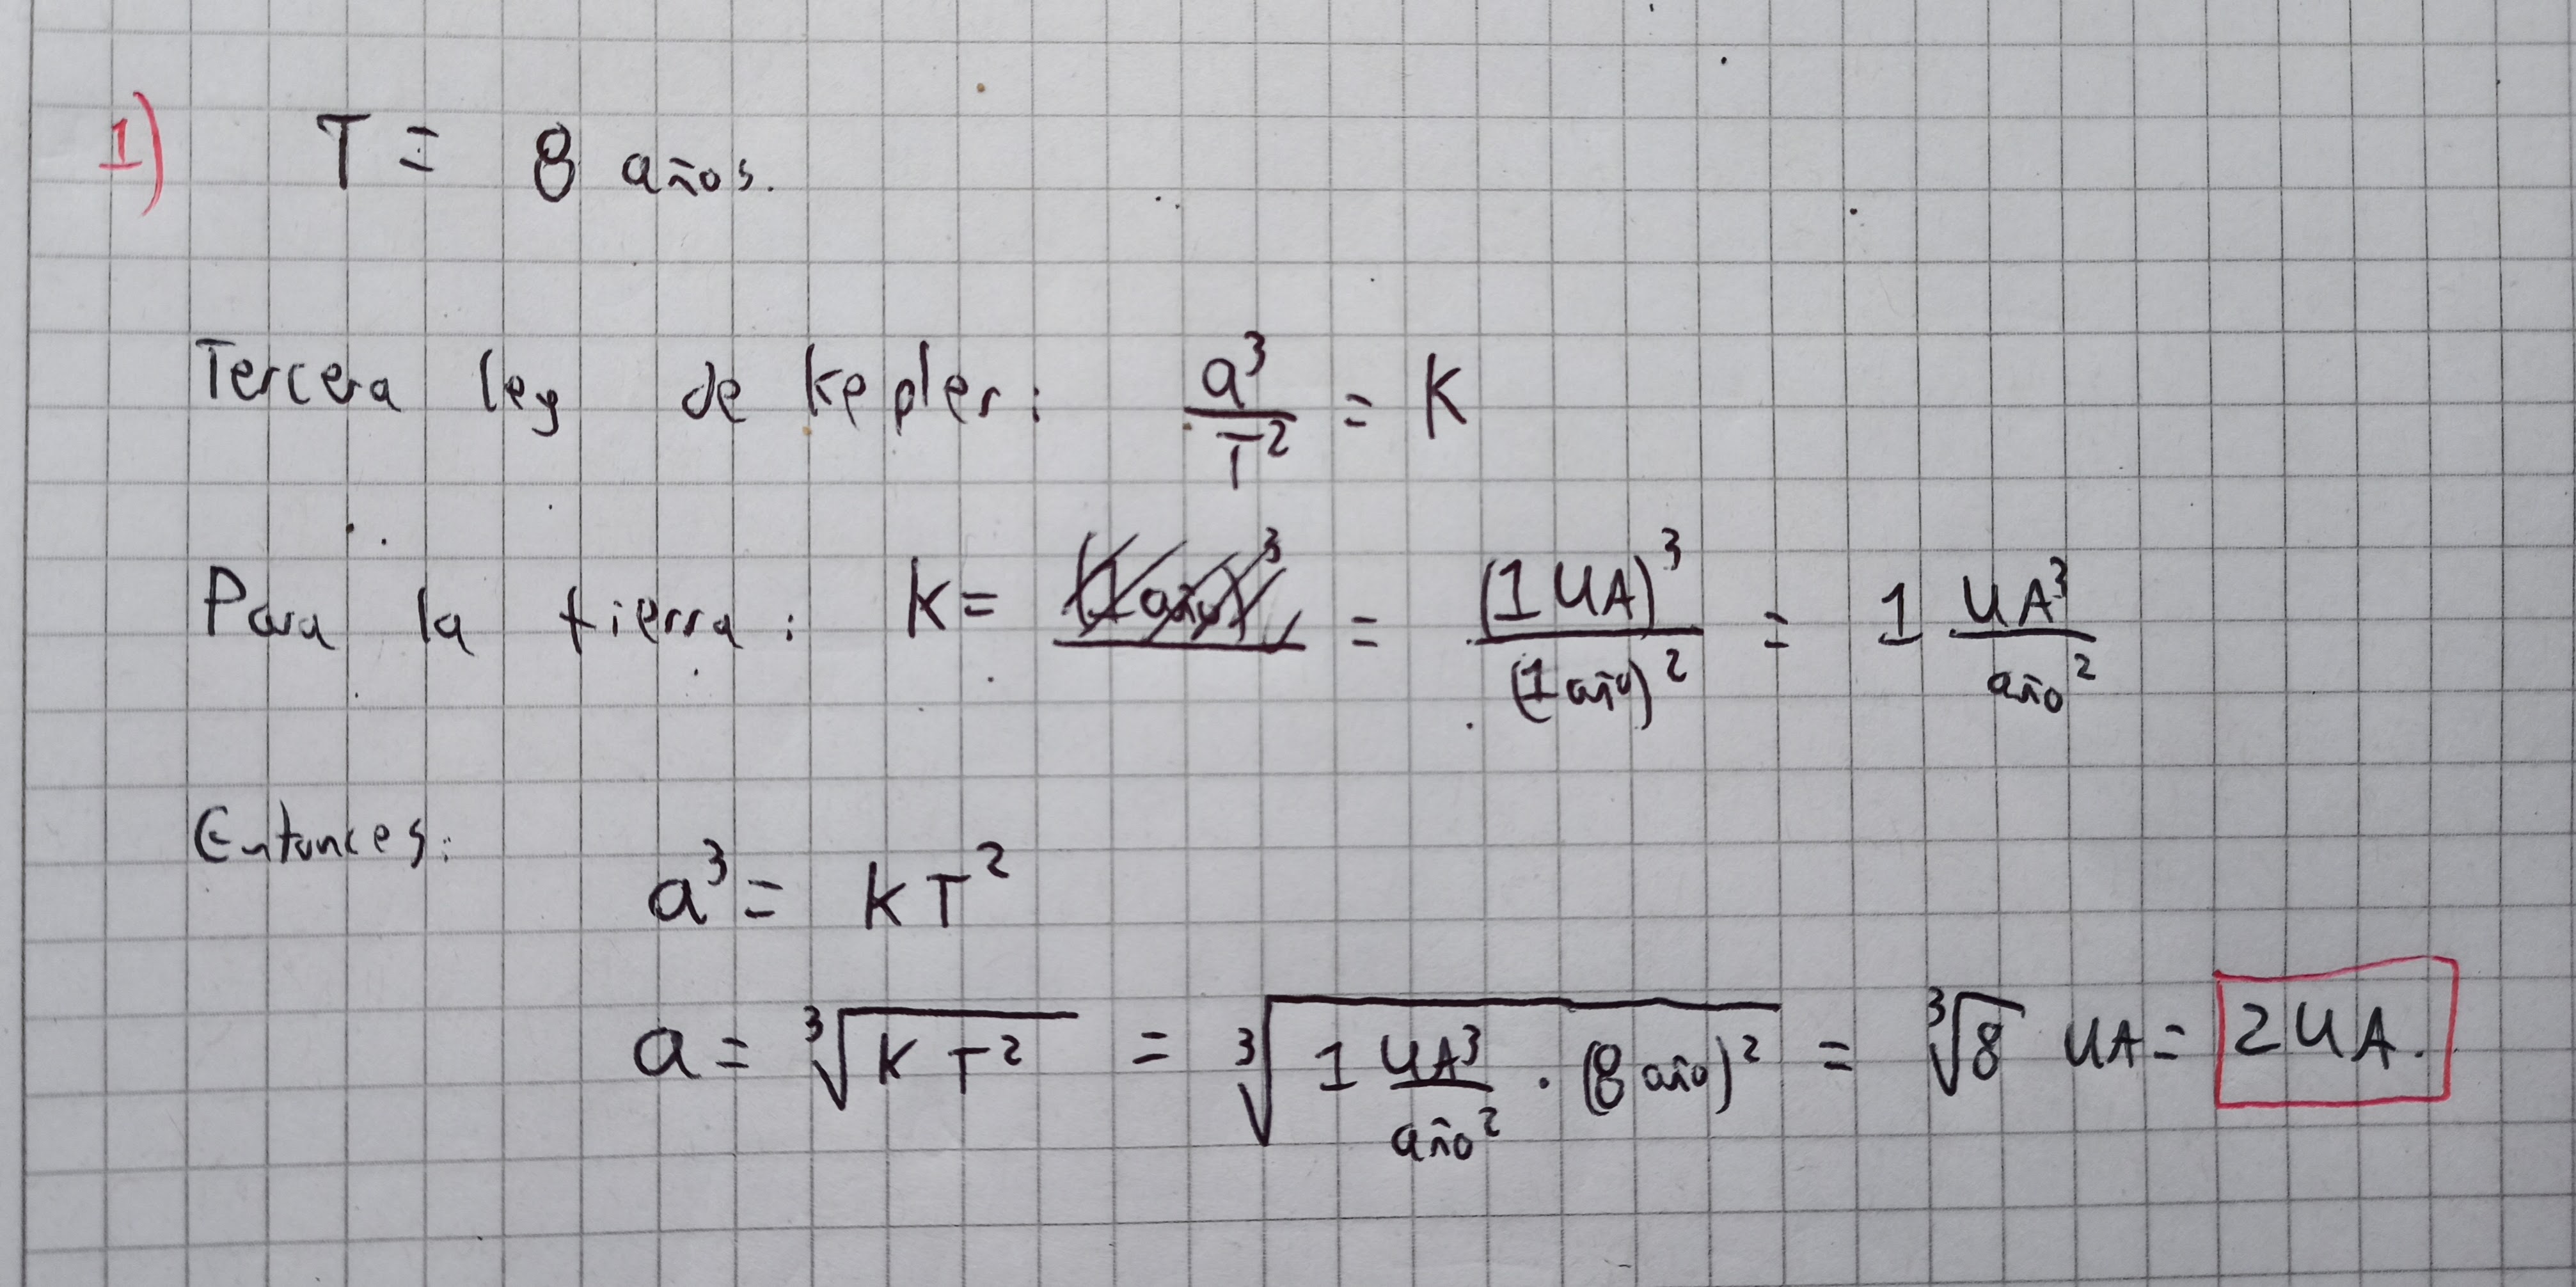 1) T = 8 años.
Tercera ley de kepler: a³/T² = K
Para la tierra: K = = (1 UA)³/(1 año)² = 1 UA³/año²
Entonces:
a³ = K T²
a = ∛(K T²) = ∛(1 UA³/año² · (8 año)²) = ∛8 UA = 2 UA.